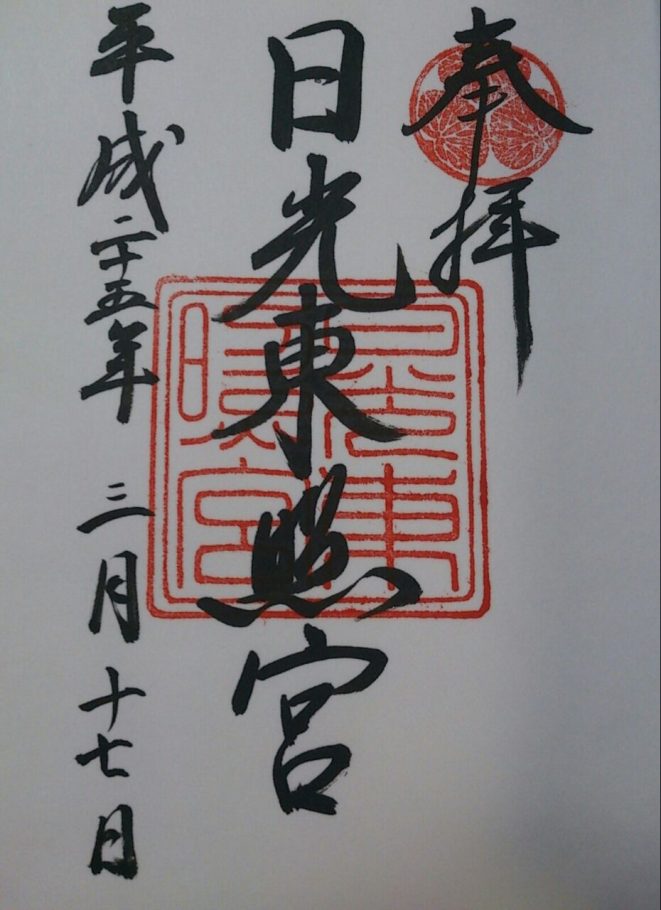 奉拝
日光東照宮
日光東照宮
平成二十五年 三月十七日